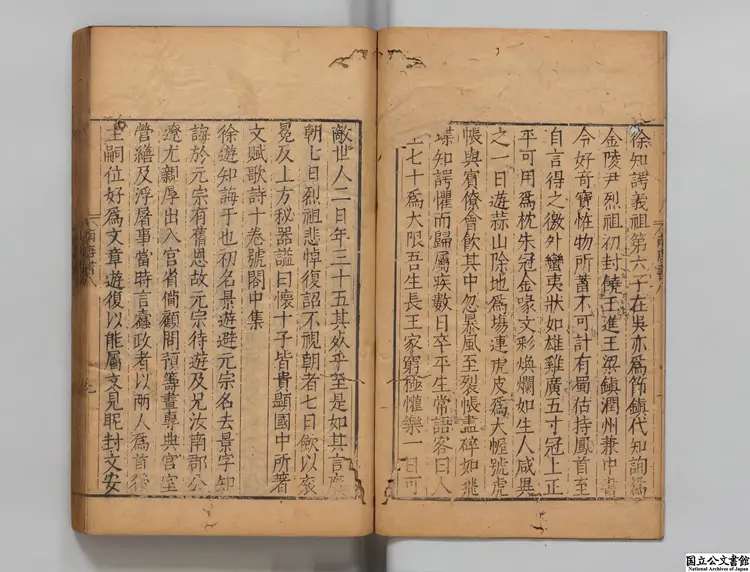 徐知諤義祖第六子在吳亦爲節鎮代知詢爲
金陵尹烈祖初封饒王進王梁鎮潤州兼中書
令好奇寶恠物所蓄不可計有蜀估持鳳首至
自言得之徼外蠻夷狀如雄雞廣五寸冠上正
平可用爲枕朱冠金喙文彩煥爛如生人咸異
之一日遊蒜山除地爲場連虎皮爲大幄號虎
帳與賓僚會飲其中忽暴風至裂帳盡碎如飛
蝶知諤懼而歸屬疾數日卒平生常語客曰人
生七十爲大限吾生長王家窮極懽樂一日可
敵世人二日年三十五其死乎至是如其言廢
朝七日烈祖悲悼復詔不視朝者七日歛以衮
冕及上方秘器謚曰懷十子皆貴顯國中所著
文賦歌詩十卷號閣中集
徐遊知誨子也初名景遊避元宗名去景字知
誨於元宗有舊恩故元宗待遊及兄汝南郡公
遼尤親厚出入宫省備顧問預籌畫專典宫室
營繕及浮屠事當時言蠹政者以兩人爲首後
主嗣位好爲文章遊復以能屬文見昵封文安
南唐書八
国立公文書館
National Archives of Japan